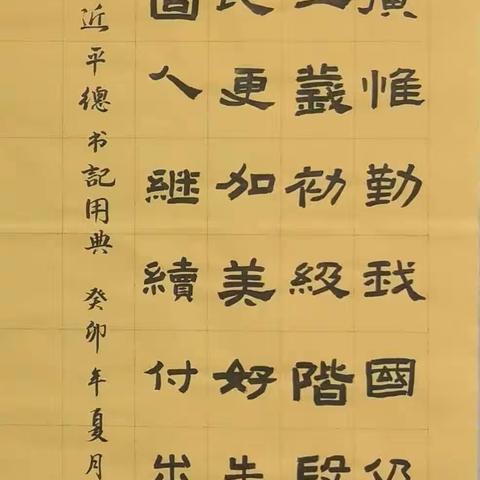 廣惟勤我國仍
義初級階段
民更加美好生
人繼續付出
近平總书記用典 癸卯年夏月